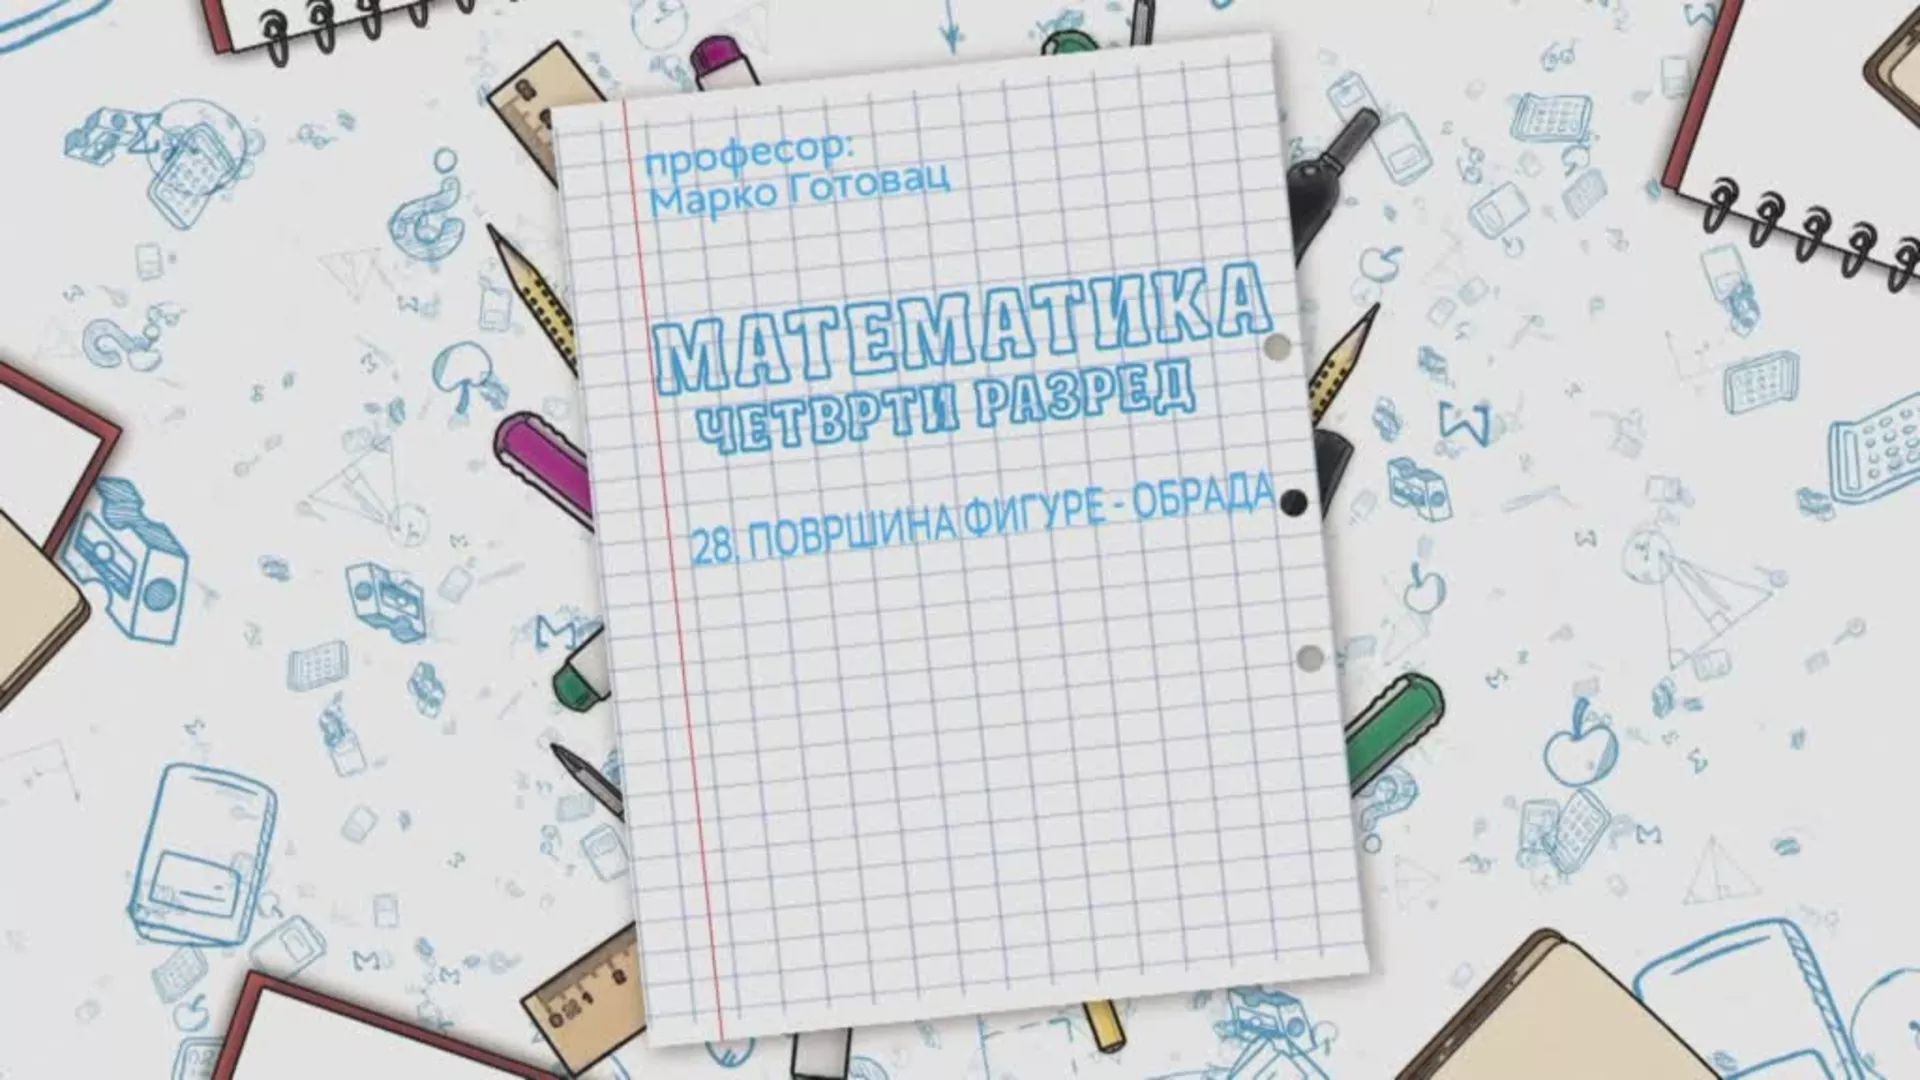 професор:
Марко Готовац
МАТЕМАТИКА
ЧЕТВРТИ РАЗРЕД
28. ПОВРШИНА ФИГУРЕ - ОБРАДА